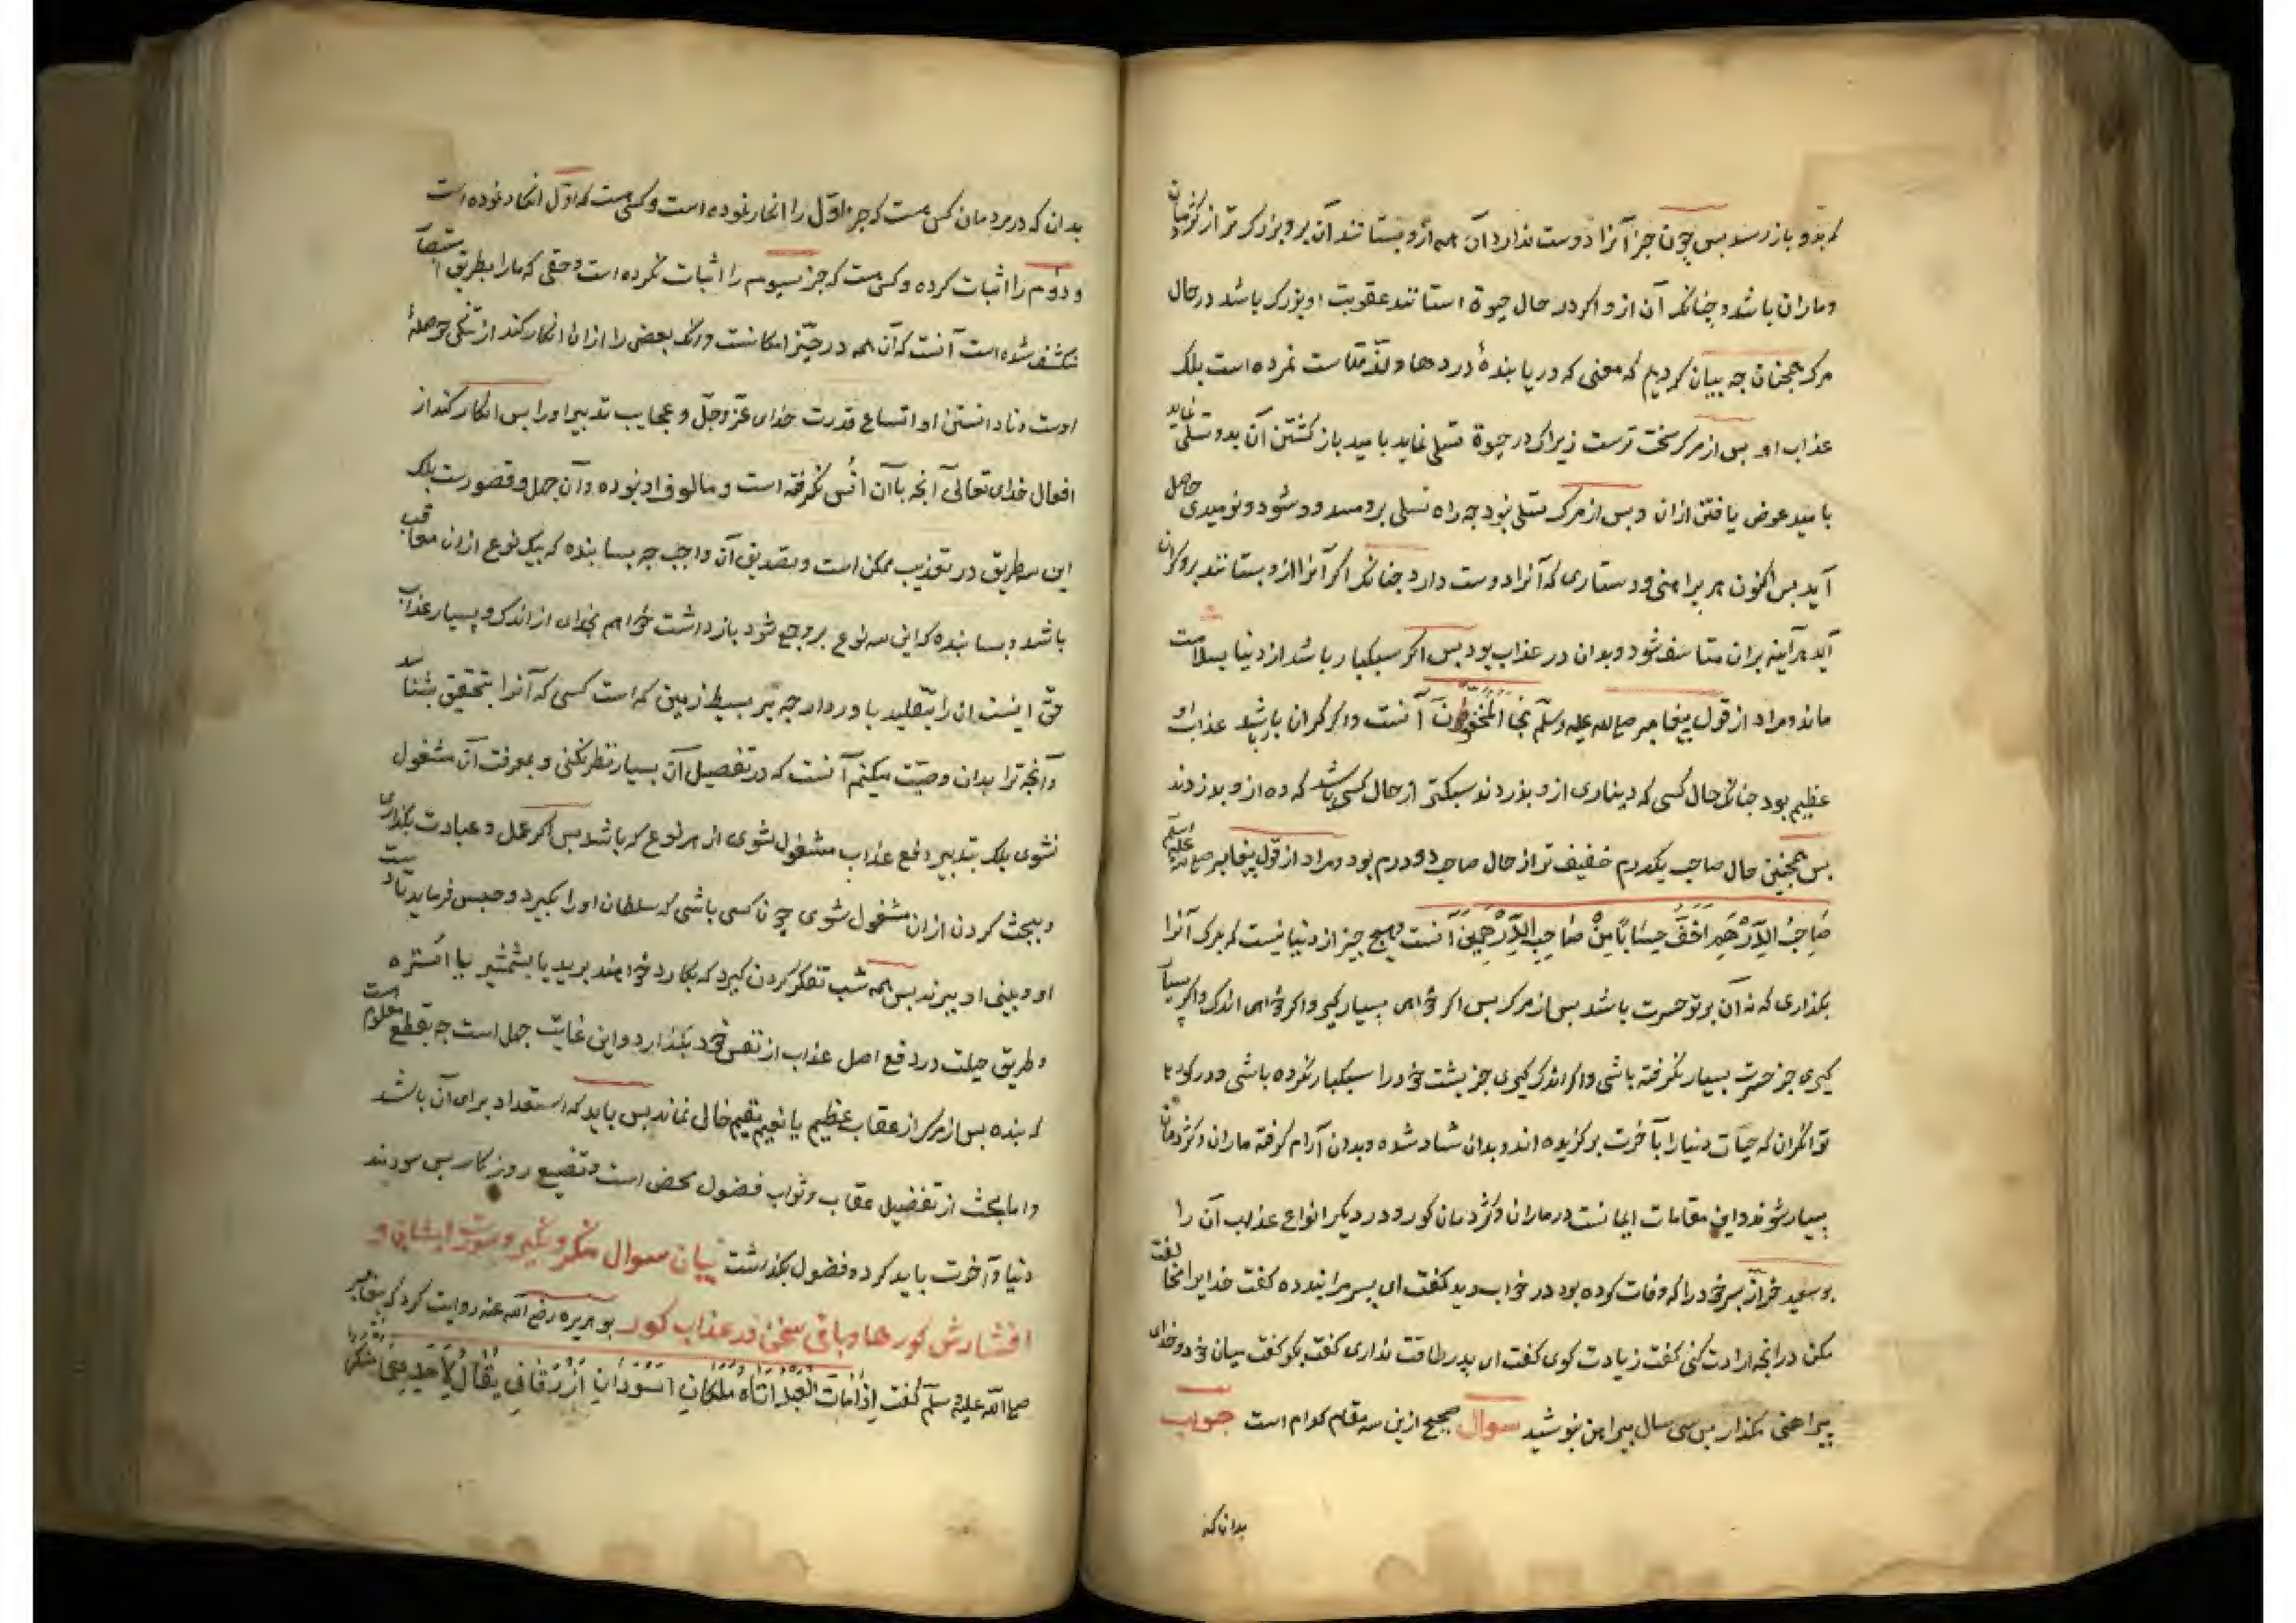 که بدو باز رسد بس چون جز آنرا دوست ندارد آن همه ازو بستانند آن برو بزرکتر از کژدمان
و ماران باشد و جنانکه آن ازو اکر در حال حیوة استانند عقوبت او بزرک باشد در حال
مرک همجنان جه بیان کردیم که معنی که دریابندهٔ دردها و لذتهاست نمرده است بلک
عذاب او بس از مرک سخت ترست زیراک در حیوة تسلی نماید بامید باز کشتن آن بدو و تسلی نماید
بامید عوض یافتن ازان و بس از مرک تسلی نبود جه راه تسلی برو مسدود شود و نومیدی حاصل
آید بس اکنون هر پیراهنی و دستاری که آنرا دوست دارد جنانکه اکر آنرا ازو بستانند برو کران
آید هر آینه بران متاسف شود و بدان در عذاب بود بس اکر سبکبار باشد از دنیا بسلامت
ماند و مراد از قول پیغامبر صلی الله علیه وسلم نجا المخفون آنست و اکر کران بار باشد عذاب او
عظیم بود جنانکه حال کسی که دیناری ازو بدزدند سبکتر از حال کسی باشد که ده ازو بدزدند
بس همجنین حال صاحب یکدرم خفیف تر از حال صاحب دو درم بود و مراد از قول پیغامبر صلی الله علیه وسلم
صاحب الدرهم اخف حسابا من صاحب الدرهمین آنست و هیچ جیز از دنیا نیست که بمرک آنرا
بکذاری که نه آن برتو حسرت باشد بس از مرک بس اکر خواهی بسیار کیر و اکر خواهی اندک و اکر بسیار
کیری جز حسرت بسیار نکرفته باشی و اکر اندک کیری جز پشت خود را سبکبار نکرده باشی و در کورهاء
توانکران که حیات دنیا را بآخرت برکزیده اند و بدان شاد شده و بدان آرام کرفته ماران و کژدمان
بسیار شوند و این مقامات ایمانست در ماران و کژدمان کور و در دیکر انواع عذاب آن را
بوسعید خراز پسر خود را که وفات کرده بود در خواب دید کفت ای پسر مرا پند ده کفت خدایرا مخالفت
مکن در انجه ارادت کنی کفت زیادت کوی کفت ای پدر طاقت نداری کفت بکو کفت میان خود و خدای
پیراهنی مکذار بس سی سال پیراهن نپوشید سوال صحیح ازین سه مقام کدام است جواب
بدان که
بدان که در مردمان کس هست که جز اول را انکار نموده است و کس هست که اول انکار نموده است
و دوم را اثبات کرده و کس هست که جز سیوم را اثبات نکرده است و حقی که ما را بطریق استبصار
منکشف شده است آنست که آن همه در حیّز امکانست و آنک بعضی را ازان انکار کند از تنکی حوصلهٔ
اوست و نادانستن او اتساع قدرت خدای عزّ و جلّ و عجایب تدبیر او را بس انکار کند از
افعال خدای تعالی آنجه باآن انس نکرفته است و مالوف او نبوده و آن جهل و قصورست بلک
این سه طریق در تعذیب ممکن است و تصدیق آن واجب جه بسا بنده که بیک نوع ازان معاقب
باشد و بسا بنده که این سه نوع برو جمع شود بازداشت خواهم بخدای از اندک و بسیار عذاب
حق اینست ان را بتقلید باور دار جه بر بسیط زمین کم است کسی که آنرا بتحقیق بشناسد
و آنجه ترا بدان وصیت میکنم آنست که در تفصیل آن بسیار نظر نکنی و بمعرفت آن مشغول
نشوی بلک بتدبیر دفع عذاب مشغول شوی از هر نوع که باشد بس اکر عمل و عبادت بکذاری
و ببحث کردن ازان مشغول شوی چون کسی باشی که سلطان او را بکیرد و حبس فرماید تا دست
او و بینی او ببرند بس همه شب تفکر کردن کیرد که بکارد خواهند برید یا بشمشیر یا با استره
و طریق حیلت در دفع اصل عذاب از نفس خود بکذارد و این غایت جهل است جه بقطع معلوم است
که بنده بس از مرک از عقاب عظیم یا نعیم مقیم خالی نماند بس باید که استعداد برای آن باشد
و اما بحث از تفضیل عقاب و ثواب فضول محض است و تضییع روزکار بس سودمند
دنیا و آخرت باید کرد و فضول بکذاشت بیان سوال منکر و نکیر و صورت ایشان و
افشارش کورها و باقی سخن در عذاب کور بوهریره رضی الله عنه روایت کرد که پیغامبر
صلی الله علیه وسلم کفت اذا مات العبد اتاه ملکان اسودان ازرقان یقال لاحدهما منکر